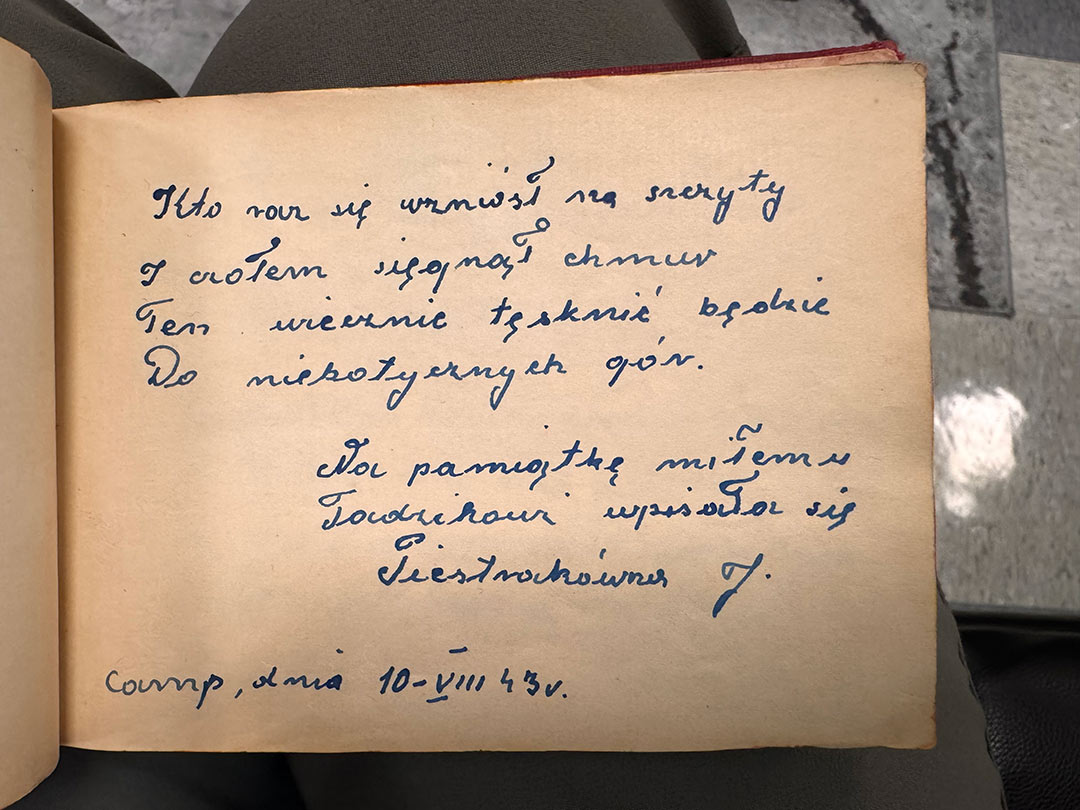 Kto raz się wzniósł na szczyty
I czołem sięgnął chmur
Ten wiecznie tęsknić będzie
Do niebotycznych gór.
Na pamiątkę miłemu
Tadzikowi wpisała się
Piestrakówna J.
Camp, dnia 10-VIII 43r.